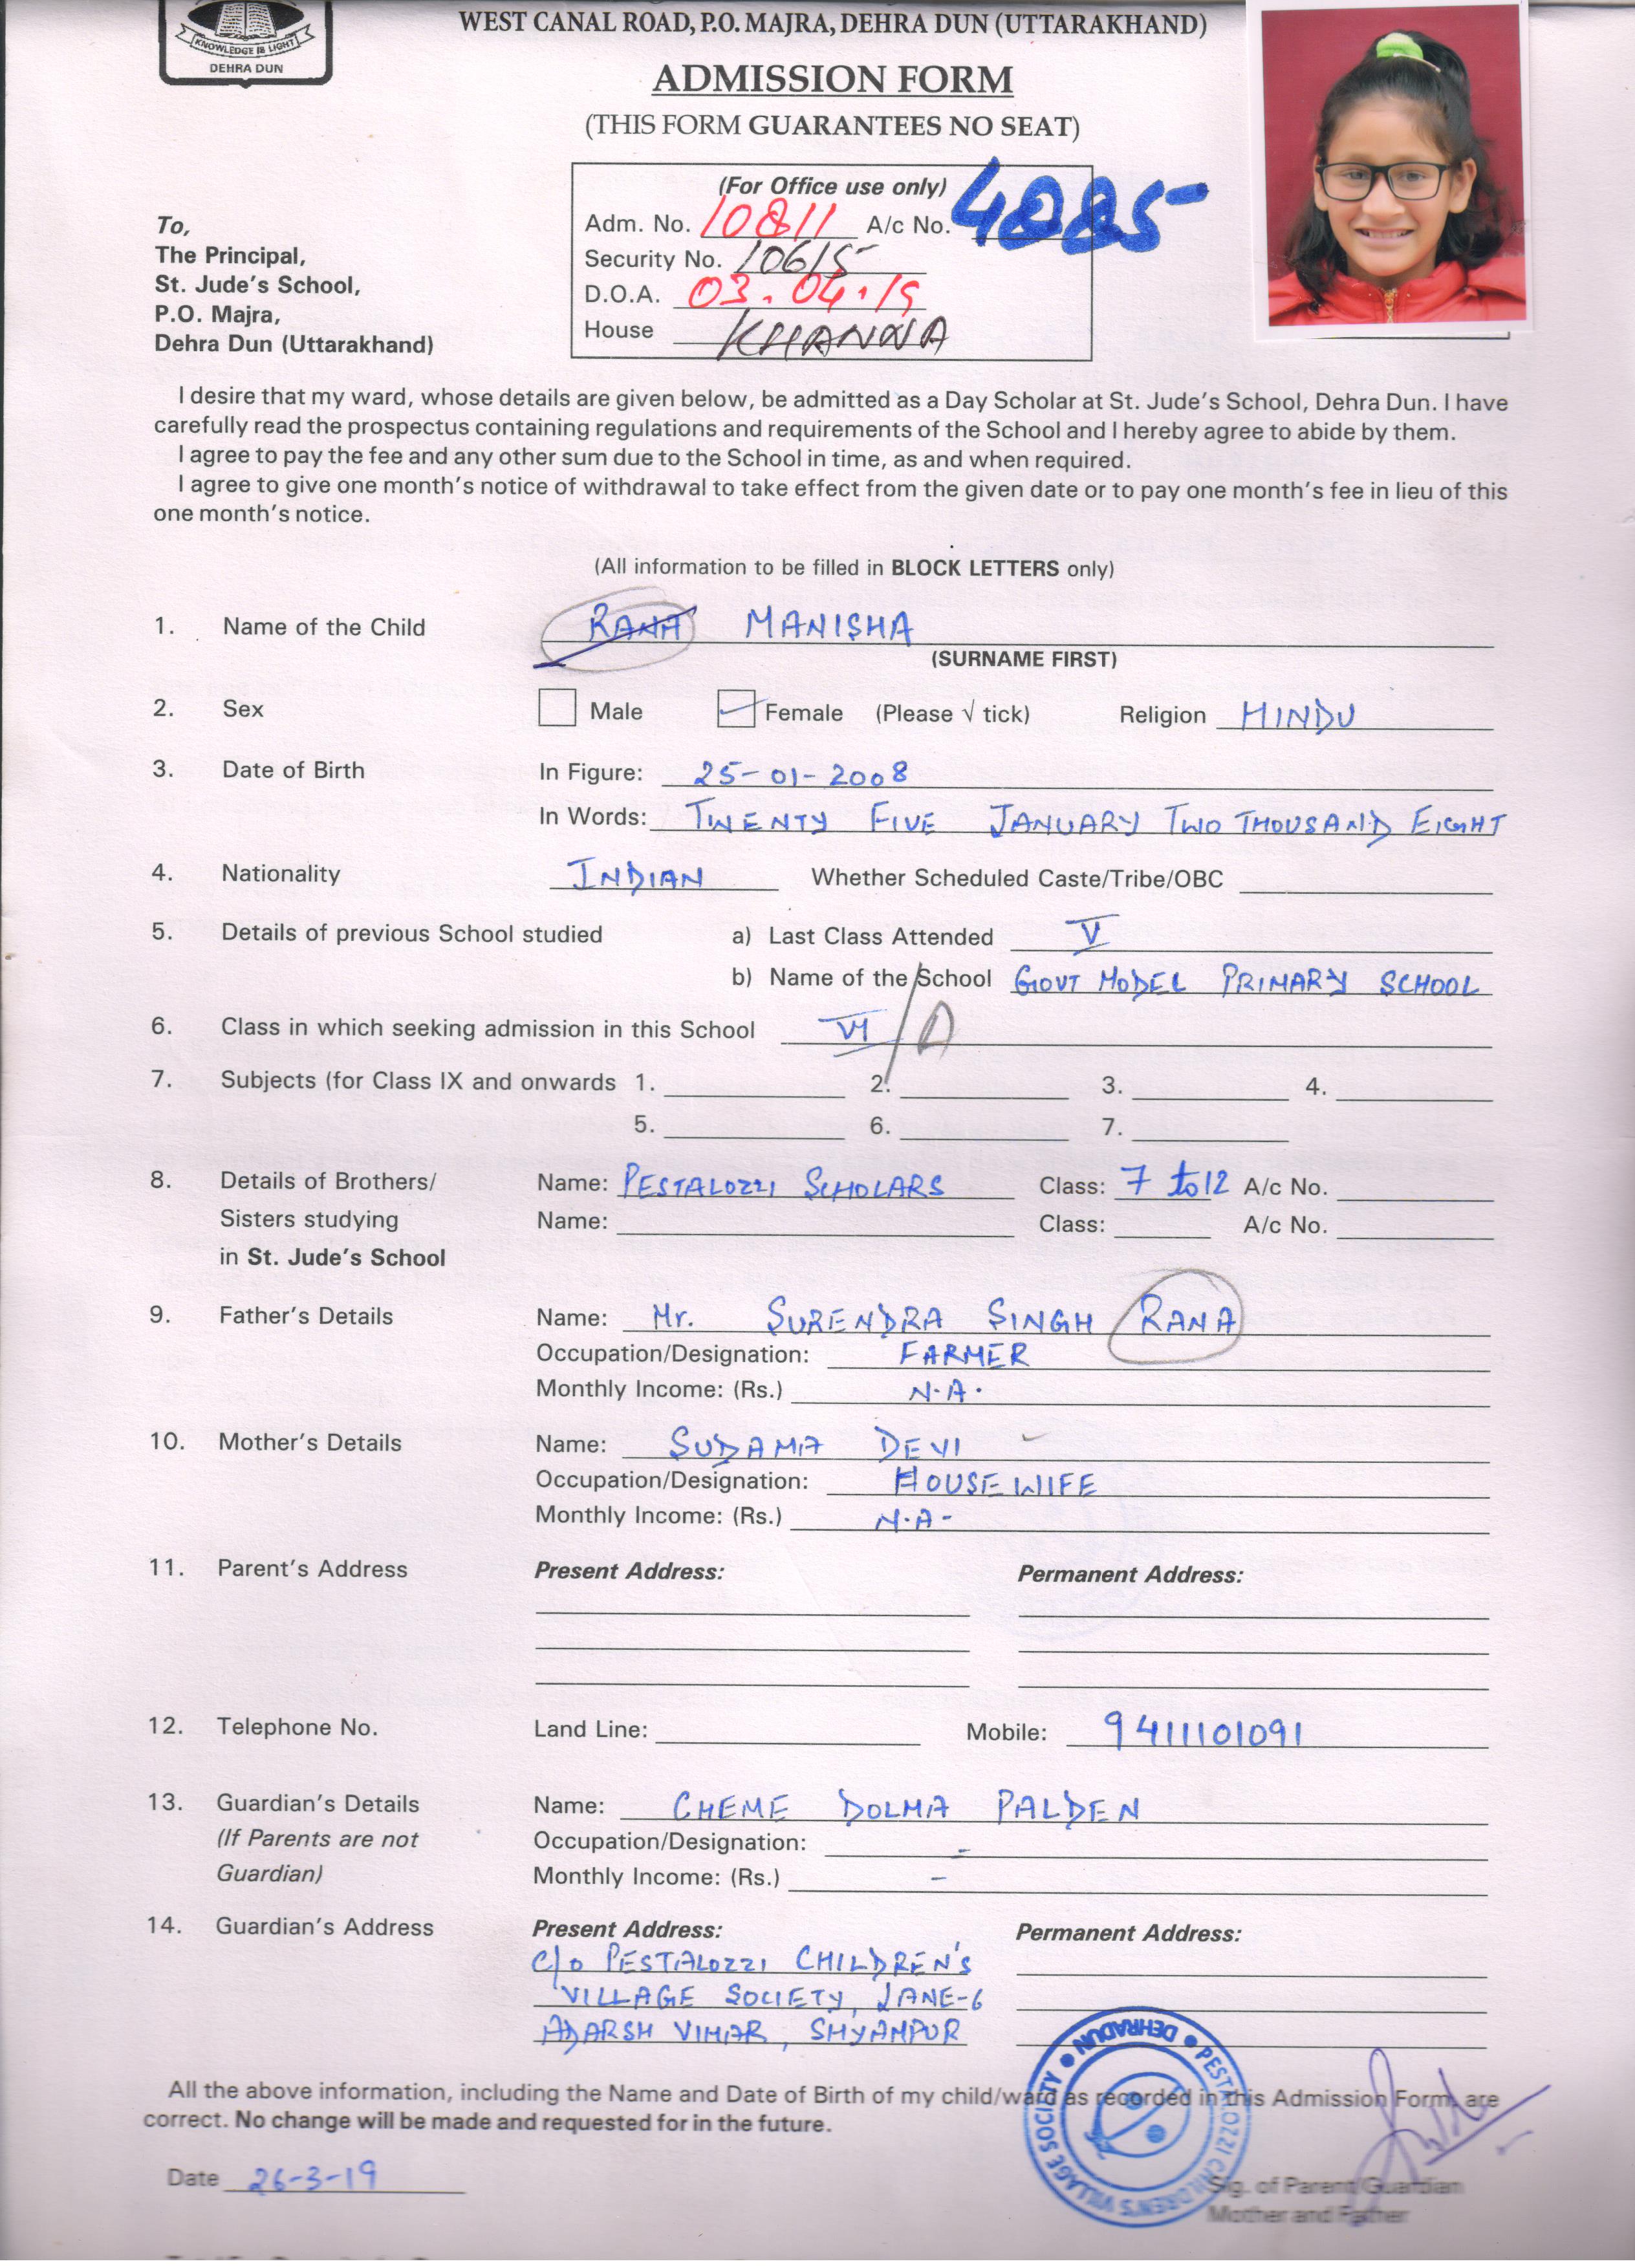 KNOWLEDGE IS LIGHT
DEHRA DUN
WEST CANAL ROAD, P.O. MAJRA, DEHRA DUN (UTTARAKHAND)
ADMISSION FORM
(THIS FORM GUARANTEES NO SEAT)
(For Office use only)
Adm. No. 10811 A/c No. 4885
Security No. 10615
D.O.A. 03.04.19
House KHANNA
To,
The Principal,
St. Jude's School,
P.O. Majra,
Dehra Dun (Uttarakhand)
I desire that my ward, whose details are given below, be admitted as a Day Scholar at St. Jude's School, Dehra Dun. I have
carefully read the prospectus containing regulations and requirements of the School and I hereby agree to abide by them.
I agree to pay the fee and any other sum due to the School in time, as and when required.
I agree to give one month's notice of withdrawal to take effect from the given date or to pay one month's fee in lieu of this
one month's notice.
(All information to be filled in BLOCK LETTERS only)
1. Name of the Child RANA MANISHA
(SURNAME FIRST)
2. Sex Male Female (Please √ tick) Religion HINDU
3. Date of Birth In Figure: 25-01-2008
In Words: TWENTY FIVE JANUARY TWO THOUSAND EIGHT
4. Nationality INDIAN Whether Scheduled Caste/Tribe/OBC
5. Details of previous School studied a) Last Class Attended V
b) Name of the School GOVT MODEL PRIMARY SCHOOL
6. Class in which seeking admission in this School VI / A
7. Subjects (for Class IX and onwards 1. 2. 3. 4.
5. 6. 7.
8. Details of Brothers/ Name: PESTALOZZI SCHOLARS Class: 7 to 12 A/c No.
Sisters studying Name: Class: A/c No.
in St. Jude's School
9. Father's Details Name: Mr. SURENDRA SINGH RANA
Occupation/Designation: FARMER
Monthly Income: (Rs.) N.A.
10. Mother's Details Name: SUDAMA DEVI
Occupation/Designation: HOUSE WIFE
Monthly Income: (Rs.) N.A-
11. Parent's Address Present Address: Permanent Address:
12. Telephone No. Land Line: Mobile: 9411101091
13. Guardian's Details Name: CHEME DOLMA PALDEN
(If Parents are not Occupation/Designation: -
Guardian) Monthly Income: (Rs.) -
14. Guardian's Address Present Address: Permanent Address:
C/o PESTALOZZI CHILDREN'S
VILLAGE SOCIETY, LANE-6
ADARSH VIHAR, SHYAMPUR
All the above information, including the Name and Date of Birth of my child/ward as recorded in this Admission Form, are
correct. No change will be made and requested for in the future.
PESTALOZZI CHILDREN'S VILLAGE SOCIETY • DEHRADUN •
Date 26-3-19
Sig. of Parent/Guardian
Mother and Father